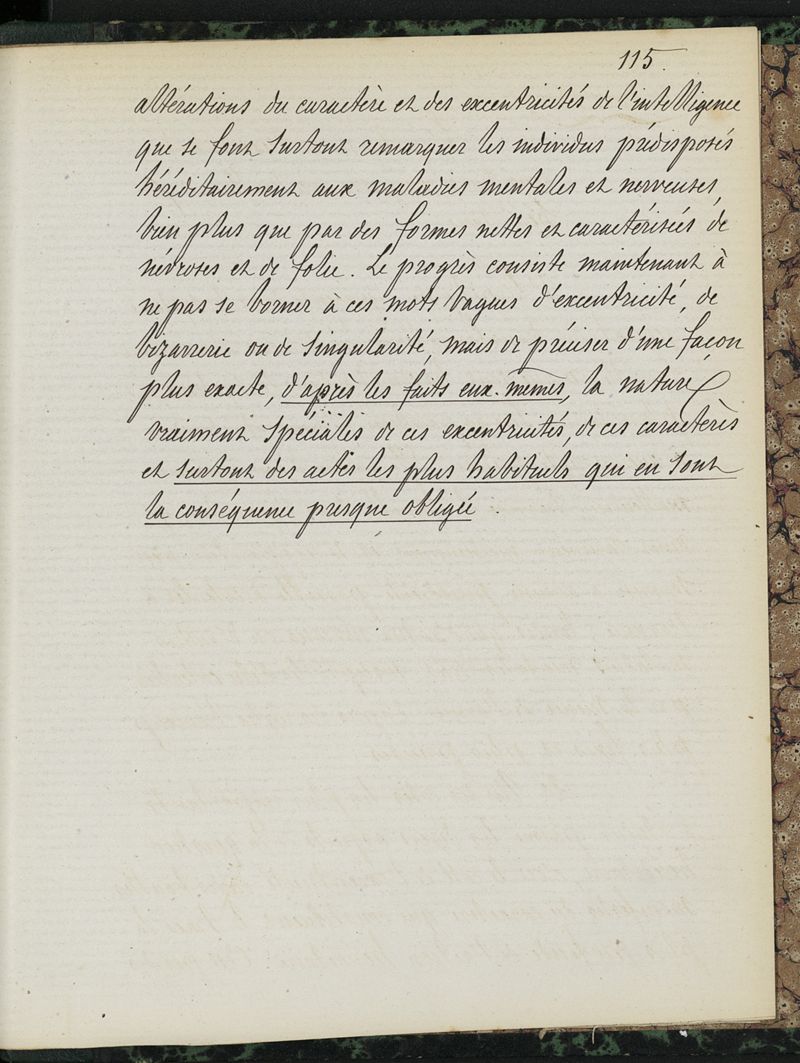 115.
altérations du caractère et des excentricités de l'intelligence
que se font surtout remarquer les individus prédisposés
héréditairement aux maladies mentales et nerveuses,
bien plus que par des formes nettes et caractérisées de
névroses et de folie. Le progrès consiste maintenant à
ne pas se borner à ces mots vagues d'excentricité, de
bizarrerie ou de singularité, mais de préciser d'une façon
plus exacte, d'après les faits eux-mêmes, la nature
vraiment spéciales de ces excentricités, de ces caractères
et surtout des actes les plus habituels qui en sont
la conséquence presque obligée.